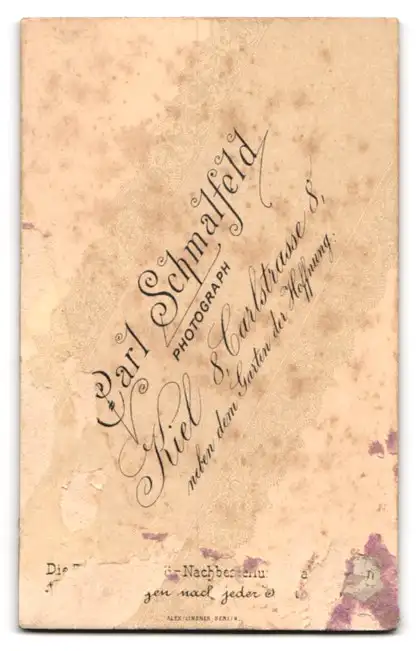 Carl Schmalfeld
PHOTOGRAPH
Kiel 8, Carlstrasse 8,
neben dem Garten der Hoffnung.
Die
gen nach jeder
BERLIN.